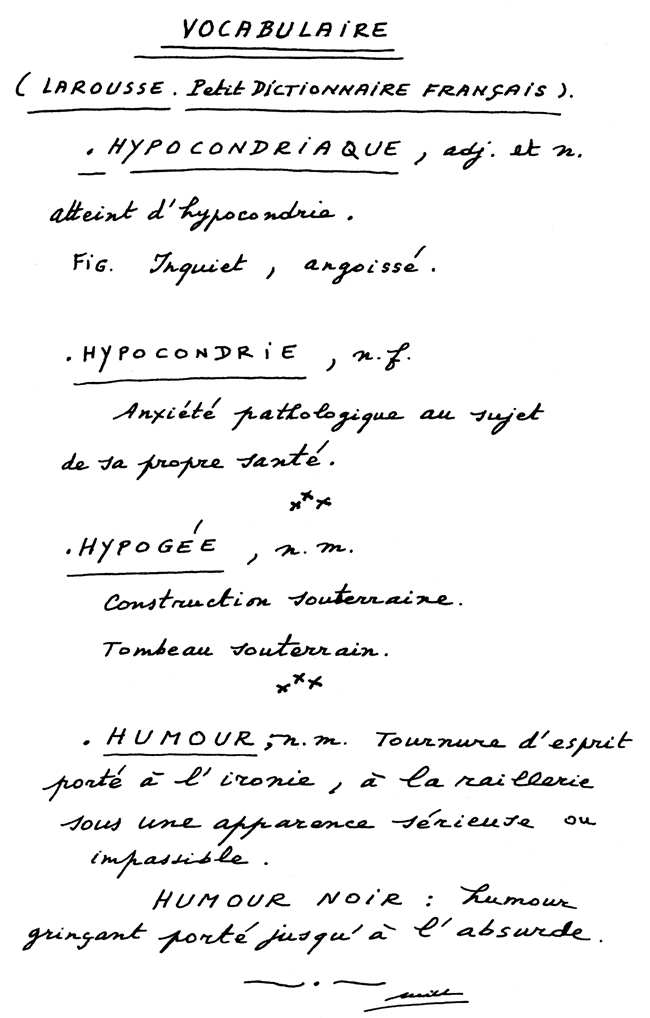 VOCABULAIRE
( LAROUSSE. Petit DICTIONNAIRE FRANÇAIS ).
. HYPOCONDRIAQUE, adj. et n.
atteint d'hypocondrie.
FIG. Inquiet, angoissé.
. HYPOCONDRIE, n.f.
Anxiété pathologique au sujet
de sa propre santé.
xxx
. HYPOGÉE, n.m.
Construction souterraine.
Tombeau souterrain.
xxx
. HUMOUR, n.m. Tournure d'esprit
porté à l'ironie, à la raillerie
sous une apparence sérieuse ou
impassible.
HUMOUR NOIR : humour
grinçant porté jusqu'à l'absurde.